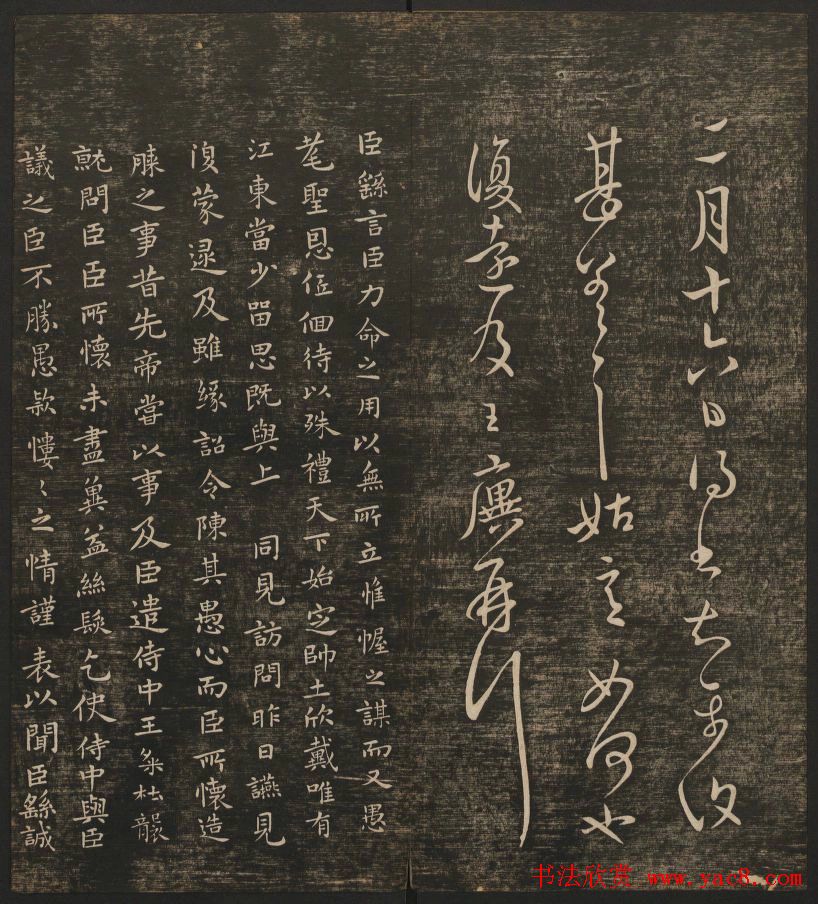 二月十六日得書知
甚
姑言如何也
復
廙再行
臣繇言臣力命之用以無所立惟幄之謀而又愚
耄聖恩低徊待以殊禮天下始定帥土欣戴唯有
江東當少留思既與上 同見訪問昨日讌見
復蒙逮及雖緣詔令陳其愚心而臣所懷造
膝之事昔先帝嘗以事及臣遣侍中王粲杜襲
就問臣臣所懷未盡冀益絲髮乞使侍中與臣
議之臣不勝愚款慺〻之情謹 表以聞臣繇誠
书法欣赏 www.yac8.com